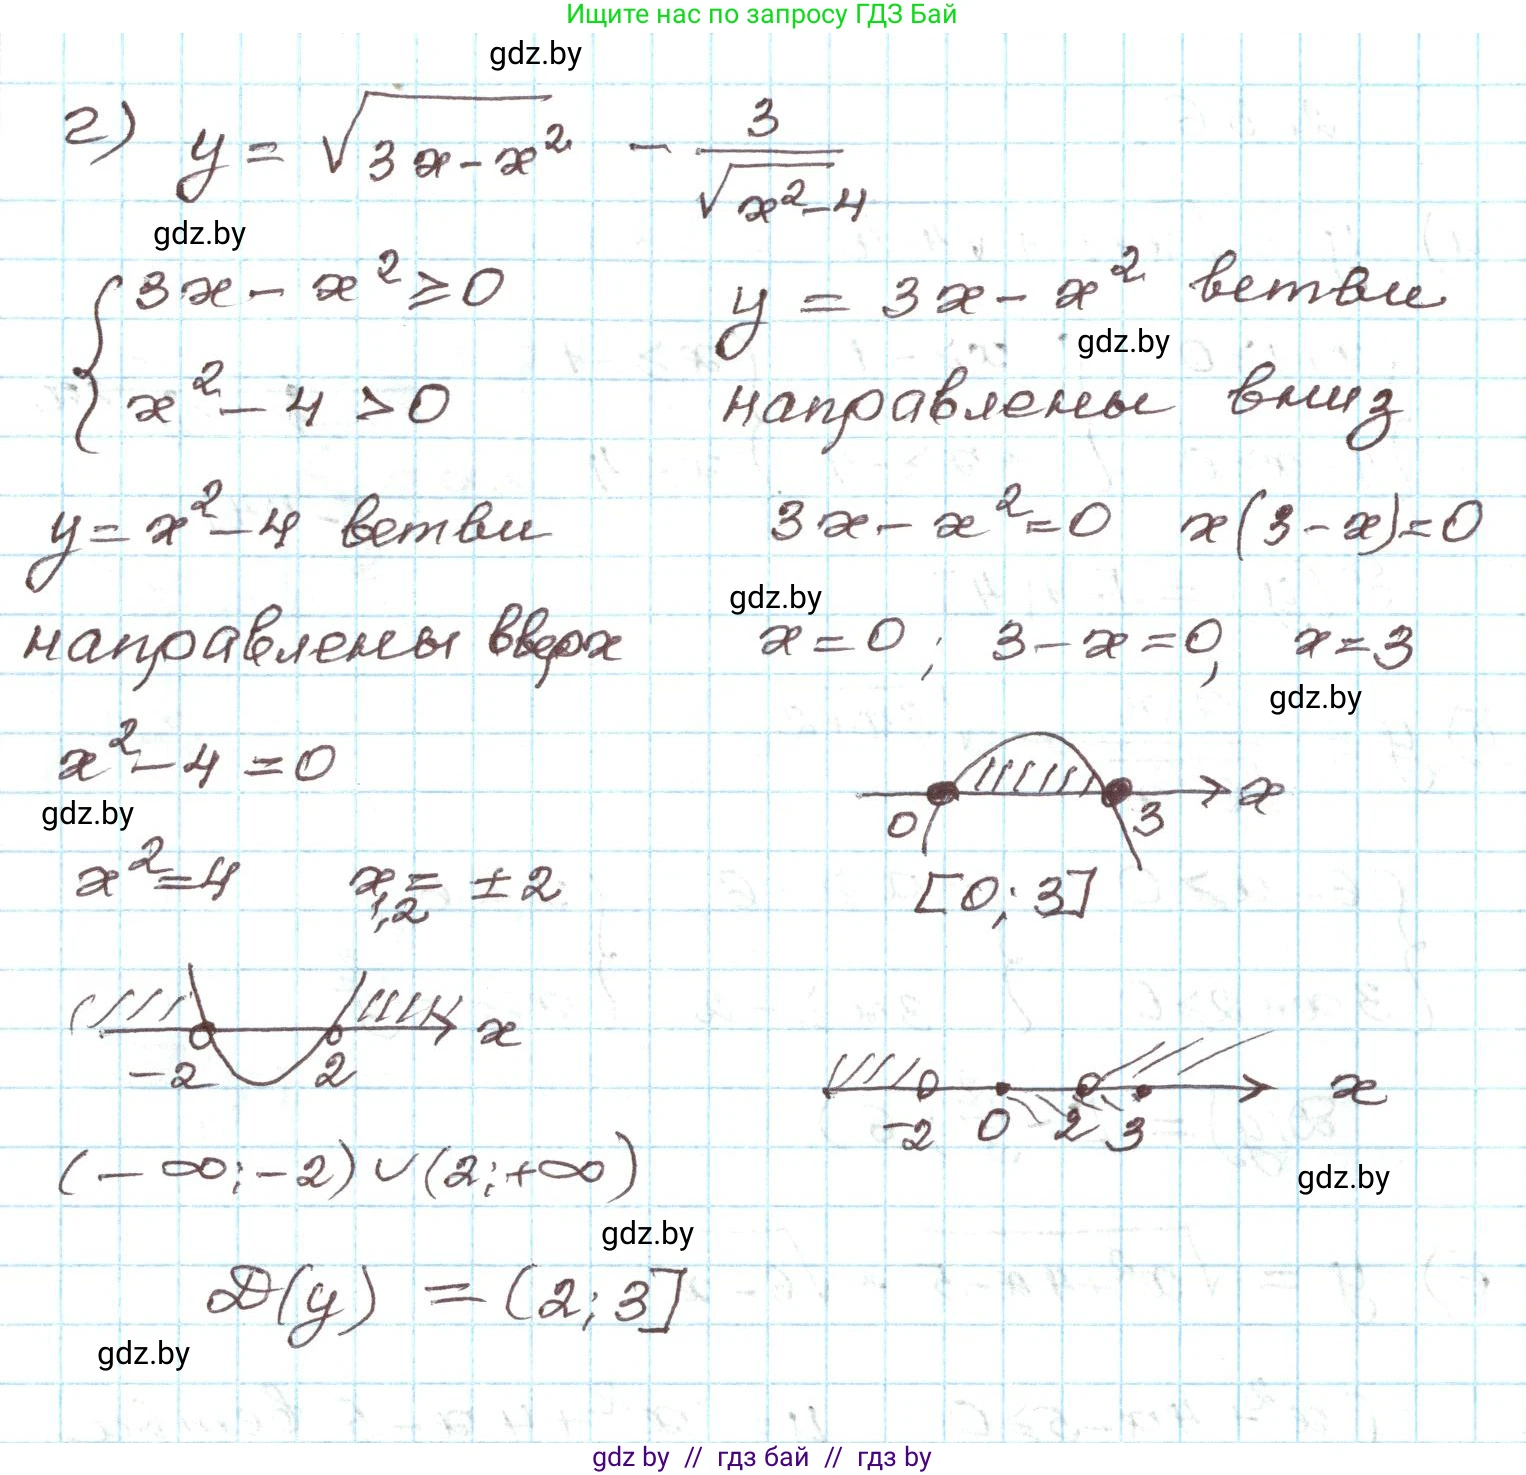 Ищите нас по запросу ГДЗ Бай
gdz.by
г) y = √(3x - x²) - 3/√(x² - 4)
gdz.by
{ 3x - x² ≥ 0
x² - 4 > 0
y = 3x - x² ветви
gdz.by
направлены вниз
y = x² - 4 ветви
направлены вверх
3x - x² = 0 x(3 - x) = 0
gdz.by
x = 0; 3 - x = 0, x = 3
gdz.by
x² - 4 = 0
gdz.by
x² = 4 x₁,₂ = ± 2
0 3 x
[0; 3]
-2 2 x
-2 0 2 3 x
(-∞; -2) ∪ (2; +∞)
gdz.by
gdz.by
D(y) = (2; 3]
gdz.by
gdz by // гдз бай // гдз by